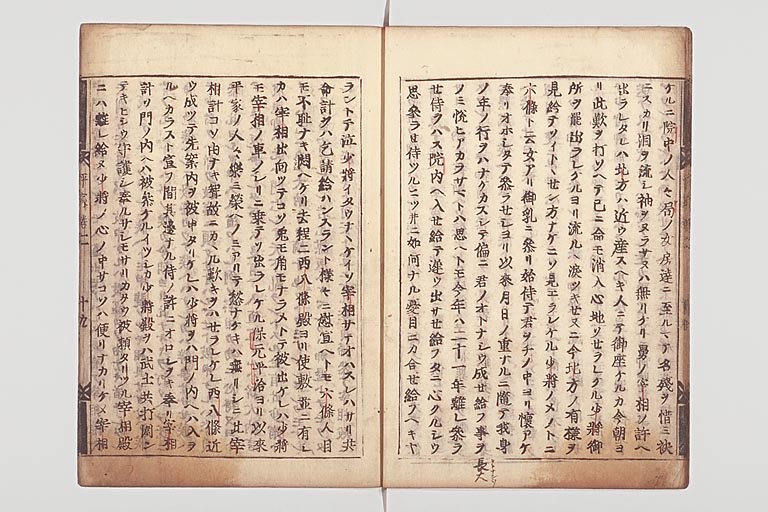 ケルニ院中ノ人々局ノ女房達ニ至ルマテ名残ヲ惜ミ袂
ニスカリ泪ヲ流シ袖ヲヌラサヌハ無リケリ舅ノ宰相ノ許ヘ
出ラレタレハ北方ハ近ウ産スヘキ人ニテ御座ケルカ今朝ヨ
リ此歎ヲ打ソヘテ已ニ命モ消入心地ソセラレケル少将御
所ヲ罷出ラレケルヨリ流ルヽ涙ツキセヌニ今北方ノ有様ヲ
見給テソイトヽセン方ナケニソ見エラレケル少将ノメノトニ
六條ト云女アリ御乳ニ参リ始侍テ君ヲチノ中ヨリ懐アケ
奉リオホシタテ参ラセシヨリ以来月日ノ重ナルニ随テ我身
ノ年ノ行ヲハナケカスシテ偏ニ君ノオトナシウ成セ給フ事ヲ
ノミ悦ヒアカラサマトハ思ヘトモ今年ハ二十一年離レ参ラ
セ侍ラス院内ヘ入セ給テ遅ウ出サセ給フタニ心クルシウ
思参ラセ侍ツルニソ井ニ如何ナル憂目ニカ合セ給フヘキヤ
長大
ラントテ泣少将イタウナヽケイソ宰相サテオハスレハサリ共
命計ヲハ乞請給ハンスラント様々ニ慰宣ヘトモ六條人目
モ不恥ナキ悶ヘケリ去程ニ西八條殿ヨリ使敷並ニ有シ
カハ宰相出向ツテコソ兎モ角モナラメトテ被出ケレハ少将
モ宰相ノ車ノシリニ乗テソ出ラレケル保元平治ヨリ以来
平家ノ人々ハ楽ミ榮ヘノミアリテ愁ナケキハ無リシニ此宰
相計コソ由ナキ聟故ニカヽル歎キヲハセラレケレ西八條近
ウ成ツテ先案内ヲ被申タリケレハ少将ヲハ門ノ内ヘハ入ラ
ルヘカラスト宣フ間其邊ナル侍ノ許ニオロシヲキ奉リ宰相
計リ門ノ内ヘハ被参ケルイツシカ少将殿ヲハ武士共打圍ミ
テキヒシウ守護シ奉ルサシモサリカタウ被頼タリツル宰相殿
ニハ離レ給ヌ少将ノ心ノ中サコソハ便リナカリケメ宰相